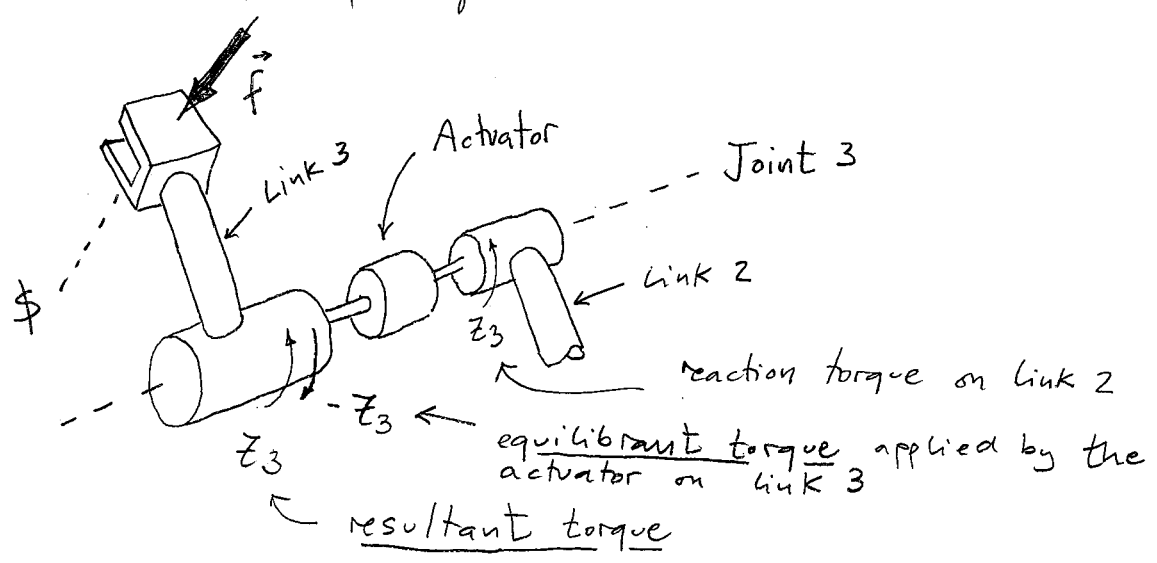 f
Actuator
Link 3
Joint 3
$
Link 2
Z3
reaction torque on link 2
- Z3
equilibrant torque applied by the
actuator on link 3
Z3
resultant torque